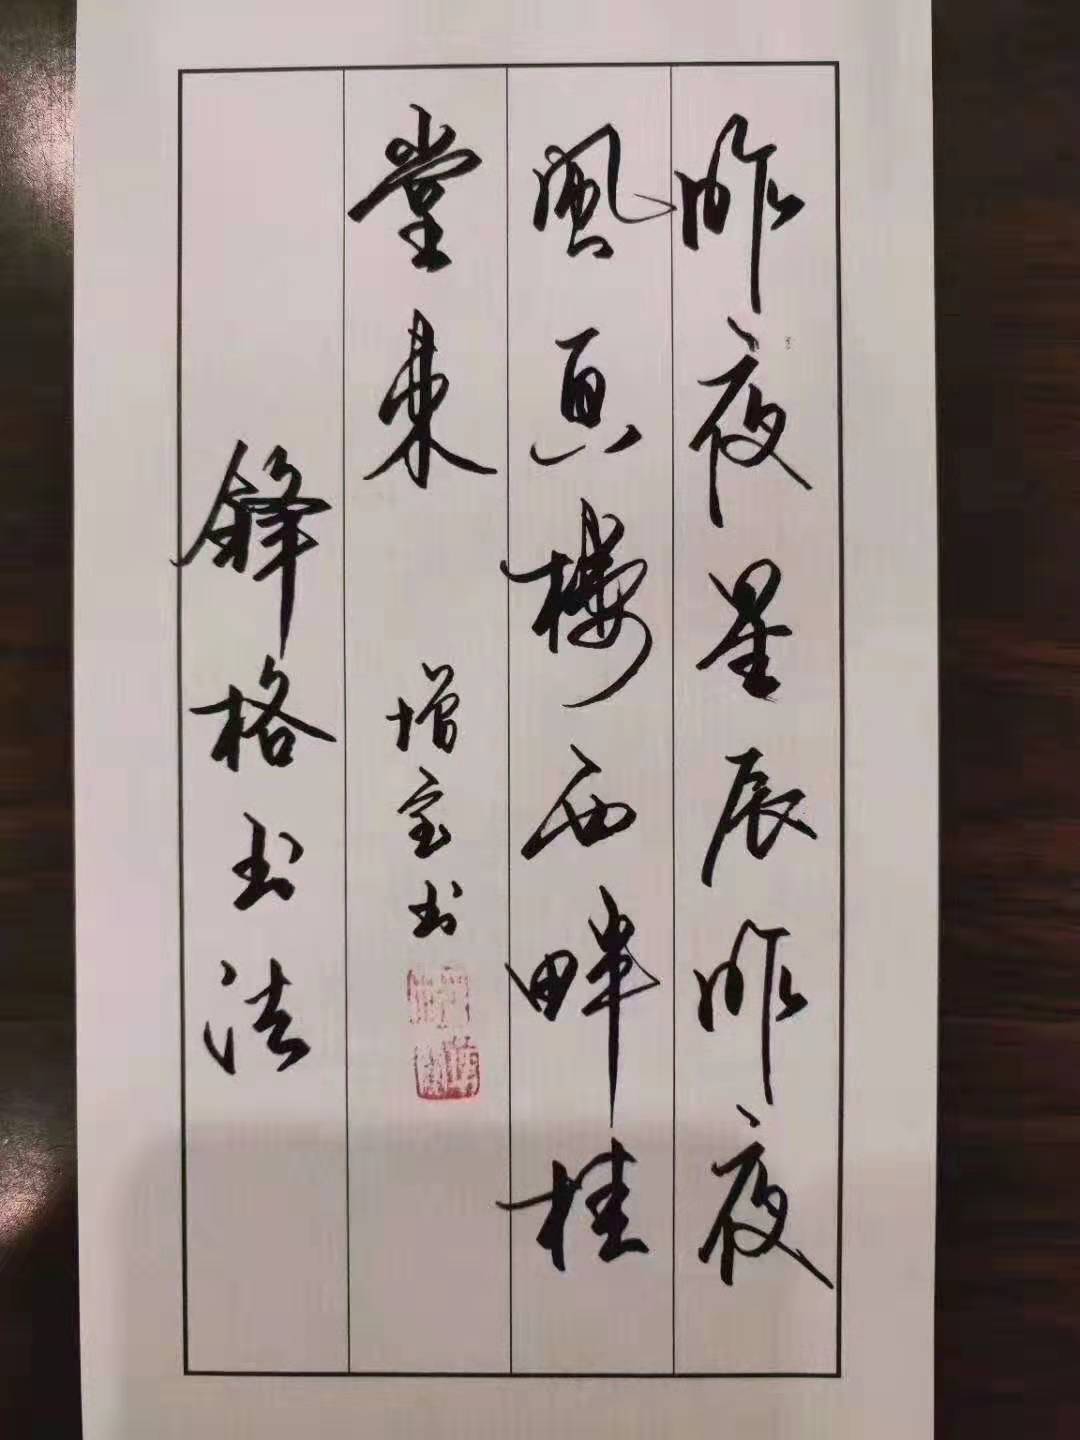 昨夜星辰昨夜
風真樓西畔桂
堂東
增宝书
锋格书法